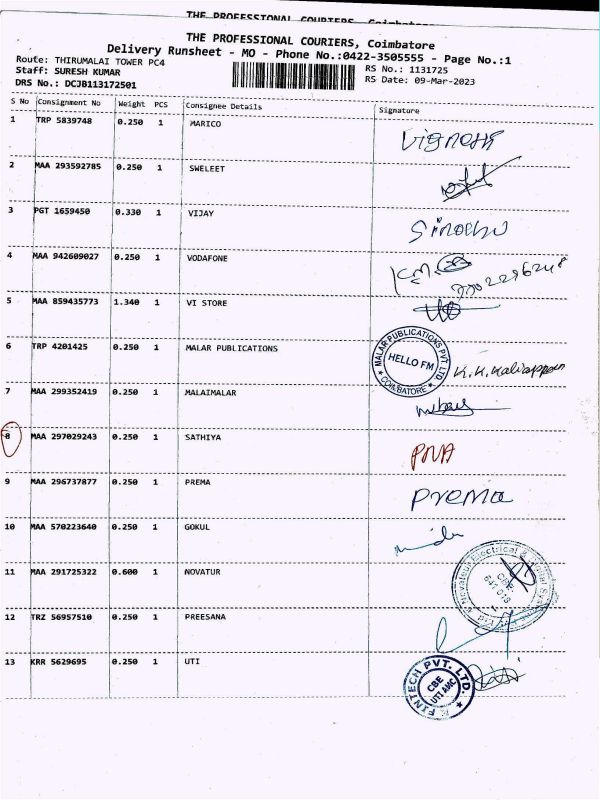 THE PROFESSIONAL COURIERS, Coimbatore
THE PROFESSIONAL COURIERS, Coimbatore
Delivery Runsheet - MO - Phone No.:0422-3505555 - Page No.:1
Route: THIRUMALAI TOWER PC4 RS No.: 1131725
Staff: SURESH KUMAR RS Date: 09-Mar-2023
DRS No.: DCJB113172501
S No Consignment No Weight PCS Consignee Details Signature
1 TRP 5839748 0.250 1 MARICO Vignesh
2 MAA 293592785 0.250 1 SWLEET
3 PGT 1659450 0.330 1 VIJAY
4 MAA 942609027 0.250 1 VODAFONE
5 MAA 859435773 1.340 1 VI STORE
6 TRP 4201425 0.250 1 MALAR PUBLICATIONS MALAR PUBLICATIONS PVT. LTD HELLO FM COIMBATORE K.K.Kaliappan
7 MAA 299352419 0.250 1 MALAIMALAR
8 MAA 297029243 0.250 1 SATHIYA PNA
9 MAA 296737877 0.250 1 PREMA Prema
10 MAA 570223640 0.250 1 GOKUL
11 MAA 291725322 0.600 1 NOVATUR
12 TRZ 56957510 0.250 1 PREESANA
13 KRR 5629695 0.250 1 UTI FINTECH PVT. LTD. CBE UTI AMC